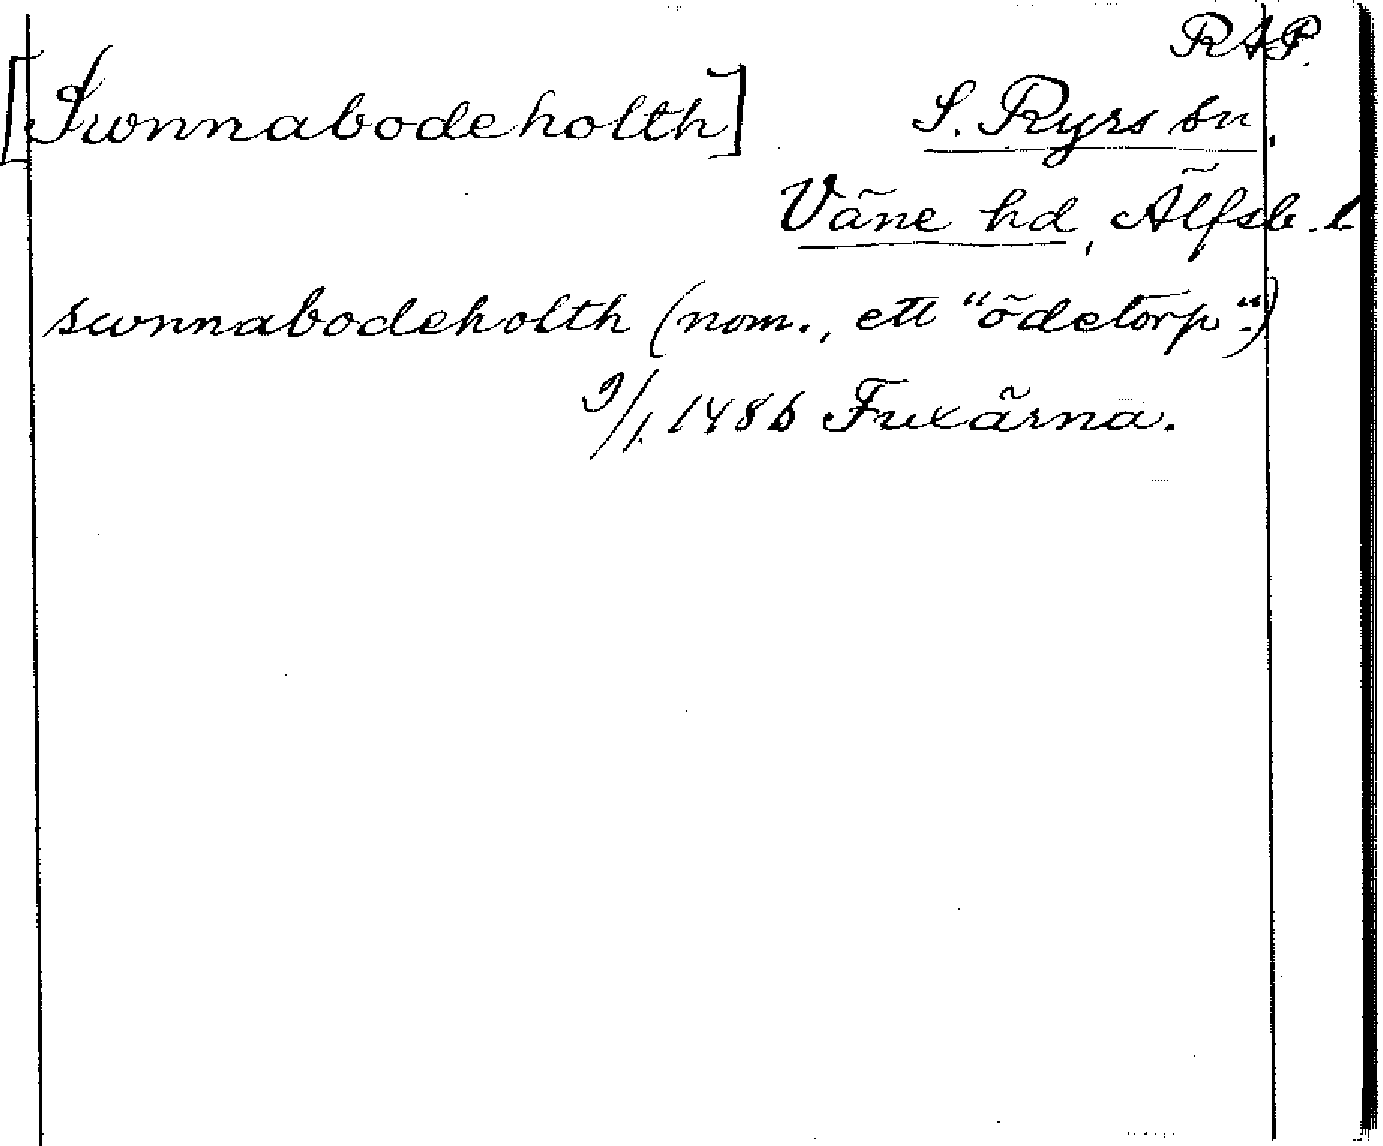 RAP.
[Swnnabodeholth] S. Ryrs sn,
Väne hd, Älfsb. l.
swnnabodeholth (nom., ett "ödetorp".)
9/1. 1486 Fuxärna.